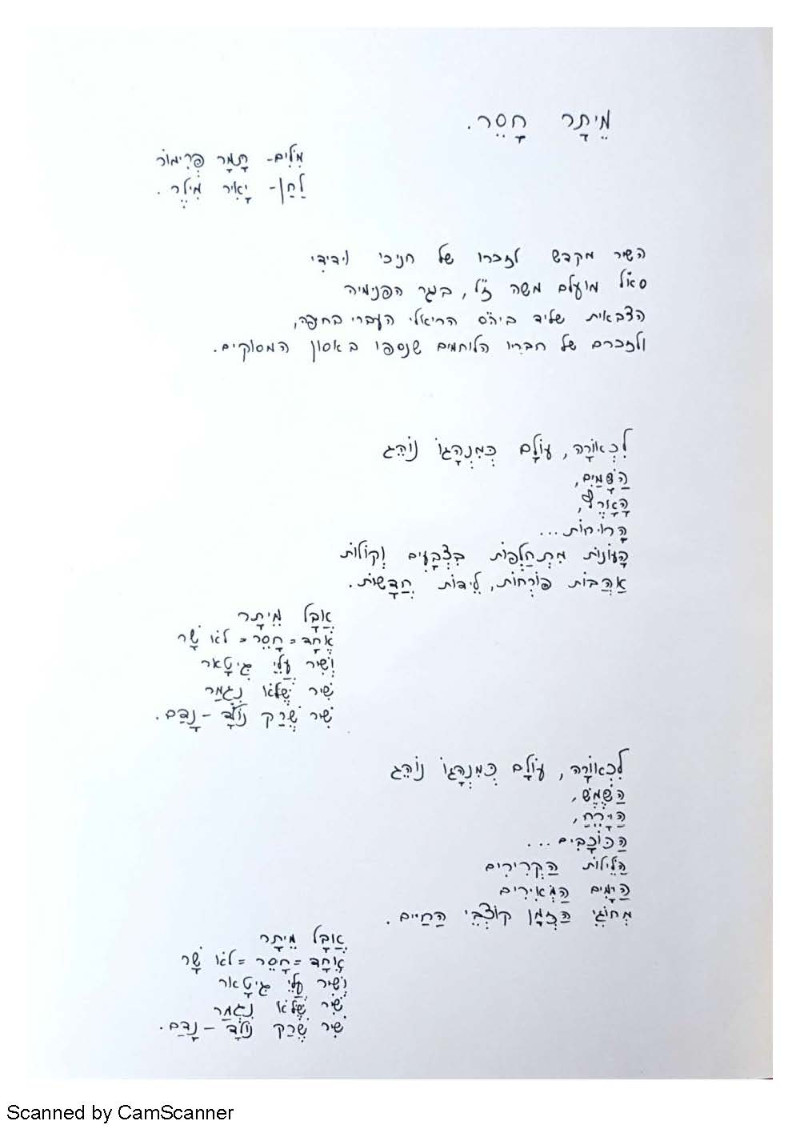 מֵיתָר חָסֵר.
מִלִּים- תָּמָר פְּרִימוֹר
לַחַן- יָאִיר מִילֶר.
השיר מקדש לזכרו של חניכי וידידי
סאל מועלם משה ז"ל, בגר הפנימיה
הצבאית שליד ביה"ס הריאלי העברי בחיפה,
ולזכרם של חבריו הלוחמים שנספו באסון המסוקים.
לִכְאוֹרָה, עוֹלָם כְּמִנְהָגוֹ נוֹהֵג
הַשָּׁמַיִם,
הָאָרֶץ,
הָרוּחוֹת...
הָעוֹנוֹת מִתְחַלְּפוֹת בִּצְבָעִים וְקוֹלוֹת
אַהֲבוֹת פּוֹרְחוֹת, לֵידוֹת חֲדָשׁוֹת.
אֲבָל מֵיתָר
אֶחָד = חָסֵר = לֹא שָׁר
וְשִׁיר עֲלֵי גִּיטָאר
שִׁיר שֶׁלֹּא נִגְמַר
שִׁיר שֶׁרַק נוֹלָד – נָדַם.
לִכְאוֹרָה, עוֹלָם כְּמִנְהָגוֹ נוֹהֵג
הַשֶּׁמֶשׁ,
הַיָּרֵחַ,
הַכּוֹכָבִים...
הַלֵּילוֹת הַקְּרִירִים
הַיָּמִים הַמְּאִירִים
מְחוֹגֵי הַזְּמָן קוֹצְבֵי הַחַיִּים.
אֲבָל מֵיתָר
אֶחָד = חָסֵר = לֹא שָׁר
וְשִׁיר עֲלֵי גִּיטָאר
שִׁיר שֶׁלֹּא נִגְמַר
שִׁיר שֶׁרַק נוֹלָד – נָדַם.
Scanned by CamScanner